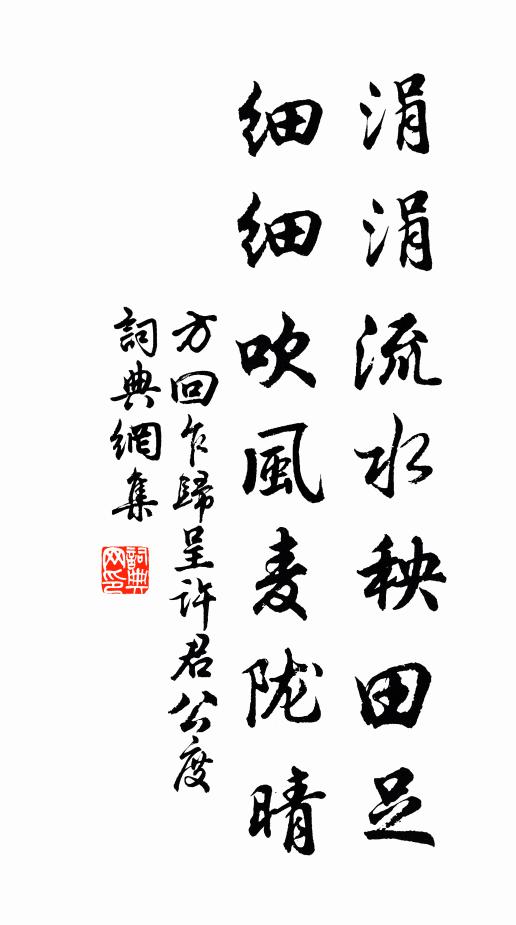 涓涓流水秧田足
细细吹風麦陇晴
方回乍歸呈许君公度
詞典網集
詞典网印